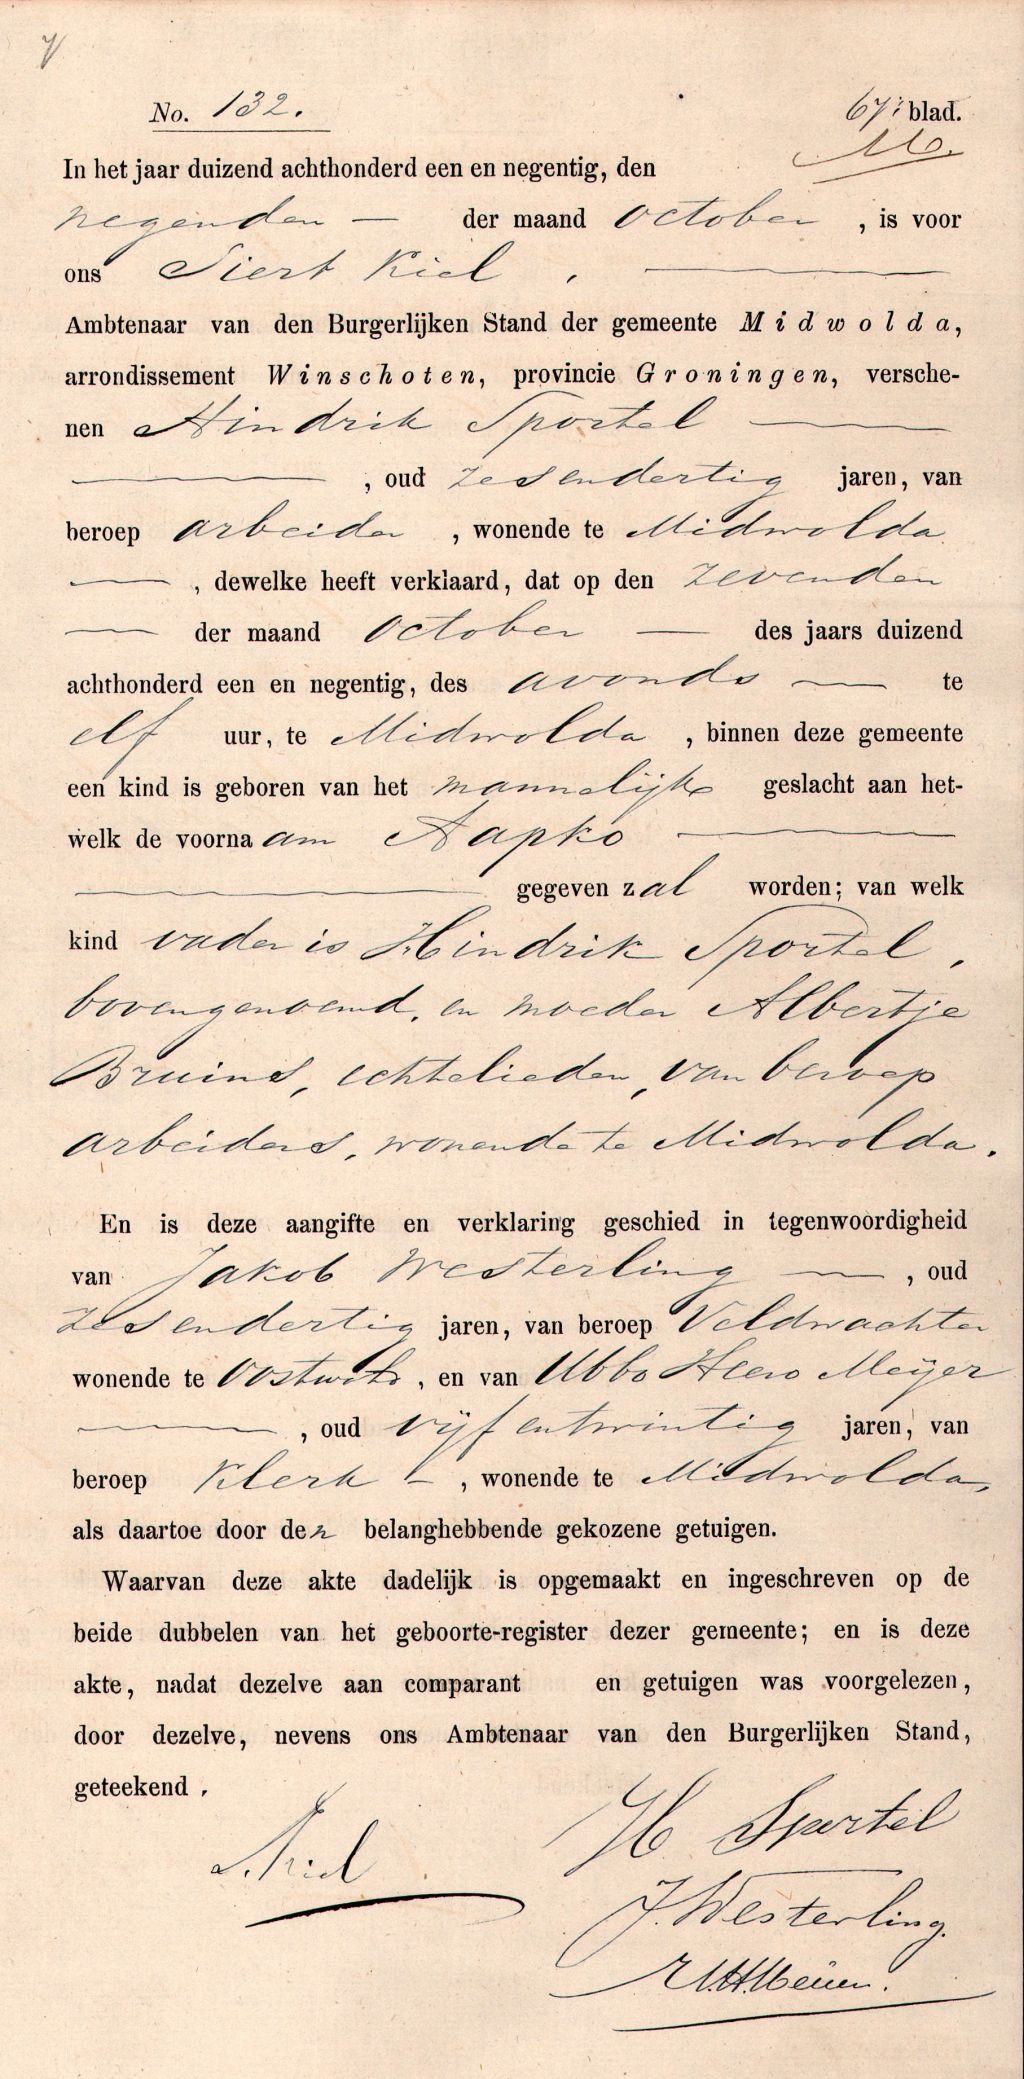 No. 132.
67e blad.
In het jaar duizend achthonderd een en negentig, den
negenden — der maand October, is voor
ons Siert Kiel,
Ambtenaar van den Burgerlijken Stand der gemeente Midwolda,
arrondissement Winschoten, provincie Groningen, versche-
nen Hindrik Sportel —
—, oud zesendertig jaren, van
beroep arbeider, wonende te Midwolda
—, dewelke heeft verklaard, dat op den zevenden
— der maand October — des jaars duizend
achthonderd een en negentig, des avonds — te
elf uur, te Midwolda, binnen deze gemeente
een kind is geboren van het mannelijke geslacht aan het-
welk de voornaam Aapko —
— gegeven zal worden; van welk
kind vader is Hindrik Sportel,
bovengenoemd, en moeder Albertje
Bruins, echtelieden, van beroep
arbeiders, wonende te Midwolda.
En is deze aangifte en verklaring geschied in tegenwoordigheid
van Jakob Westerling —, oud
zesendertig jaren, van beroep Veldwachter
wonende te Oostwold, en van Ubbo Heero Meijer
—, oud vijfentwintig jaren, van
beroep Klerk —, wonende te Midwolda,
als daartoe door den belanghebbende gekozene getuigen.
Waarvan deze akte dadelijk is opgemaakt en ingeschreven op de
beide dubbelen van het geboorte-register dezer gemeente; en is deze
akte, nadat dezelve aan comparant en getuigen was voorgelezen,
door dezelve, nevens ons Ambtenaar van den Burgerlijken Stand,
geteekend.
H Sportel
S. Kiel
J. Westerling.